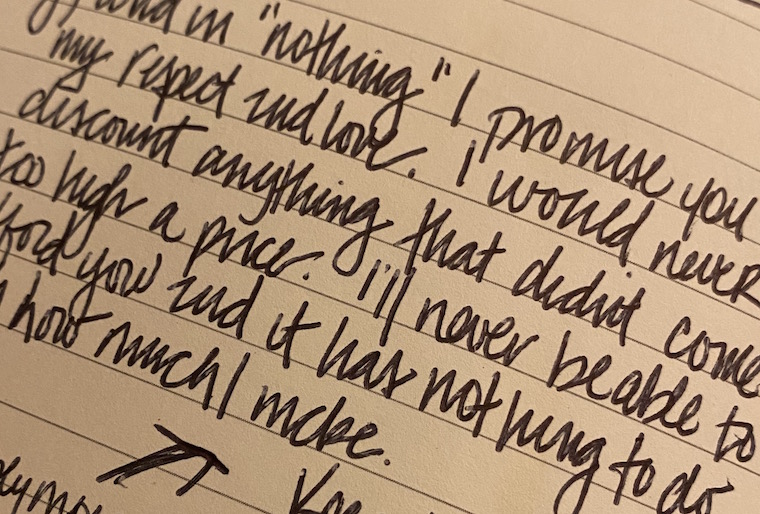 and in "nothing" I promise you
my respect and love. I would never
discount anything that didn't come
too high a price. I'll never be able to
you and it has nothing to do
how much I make.